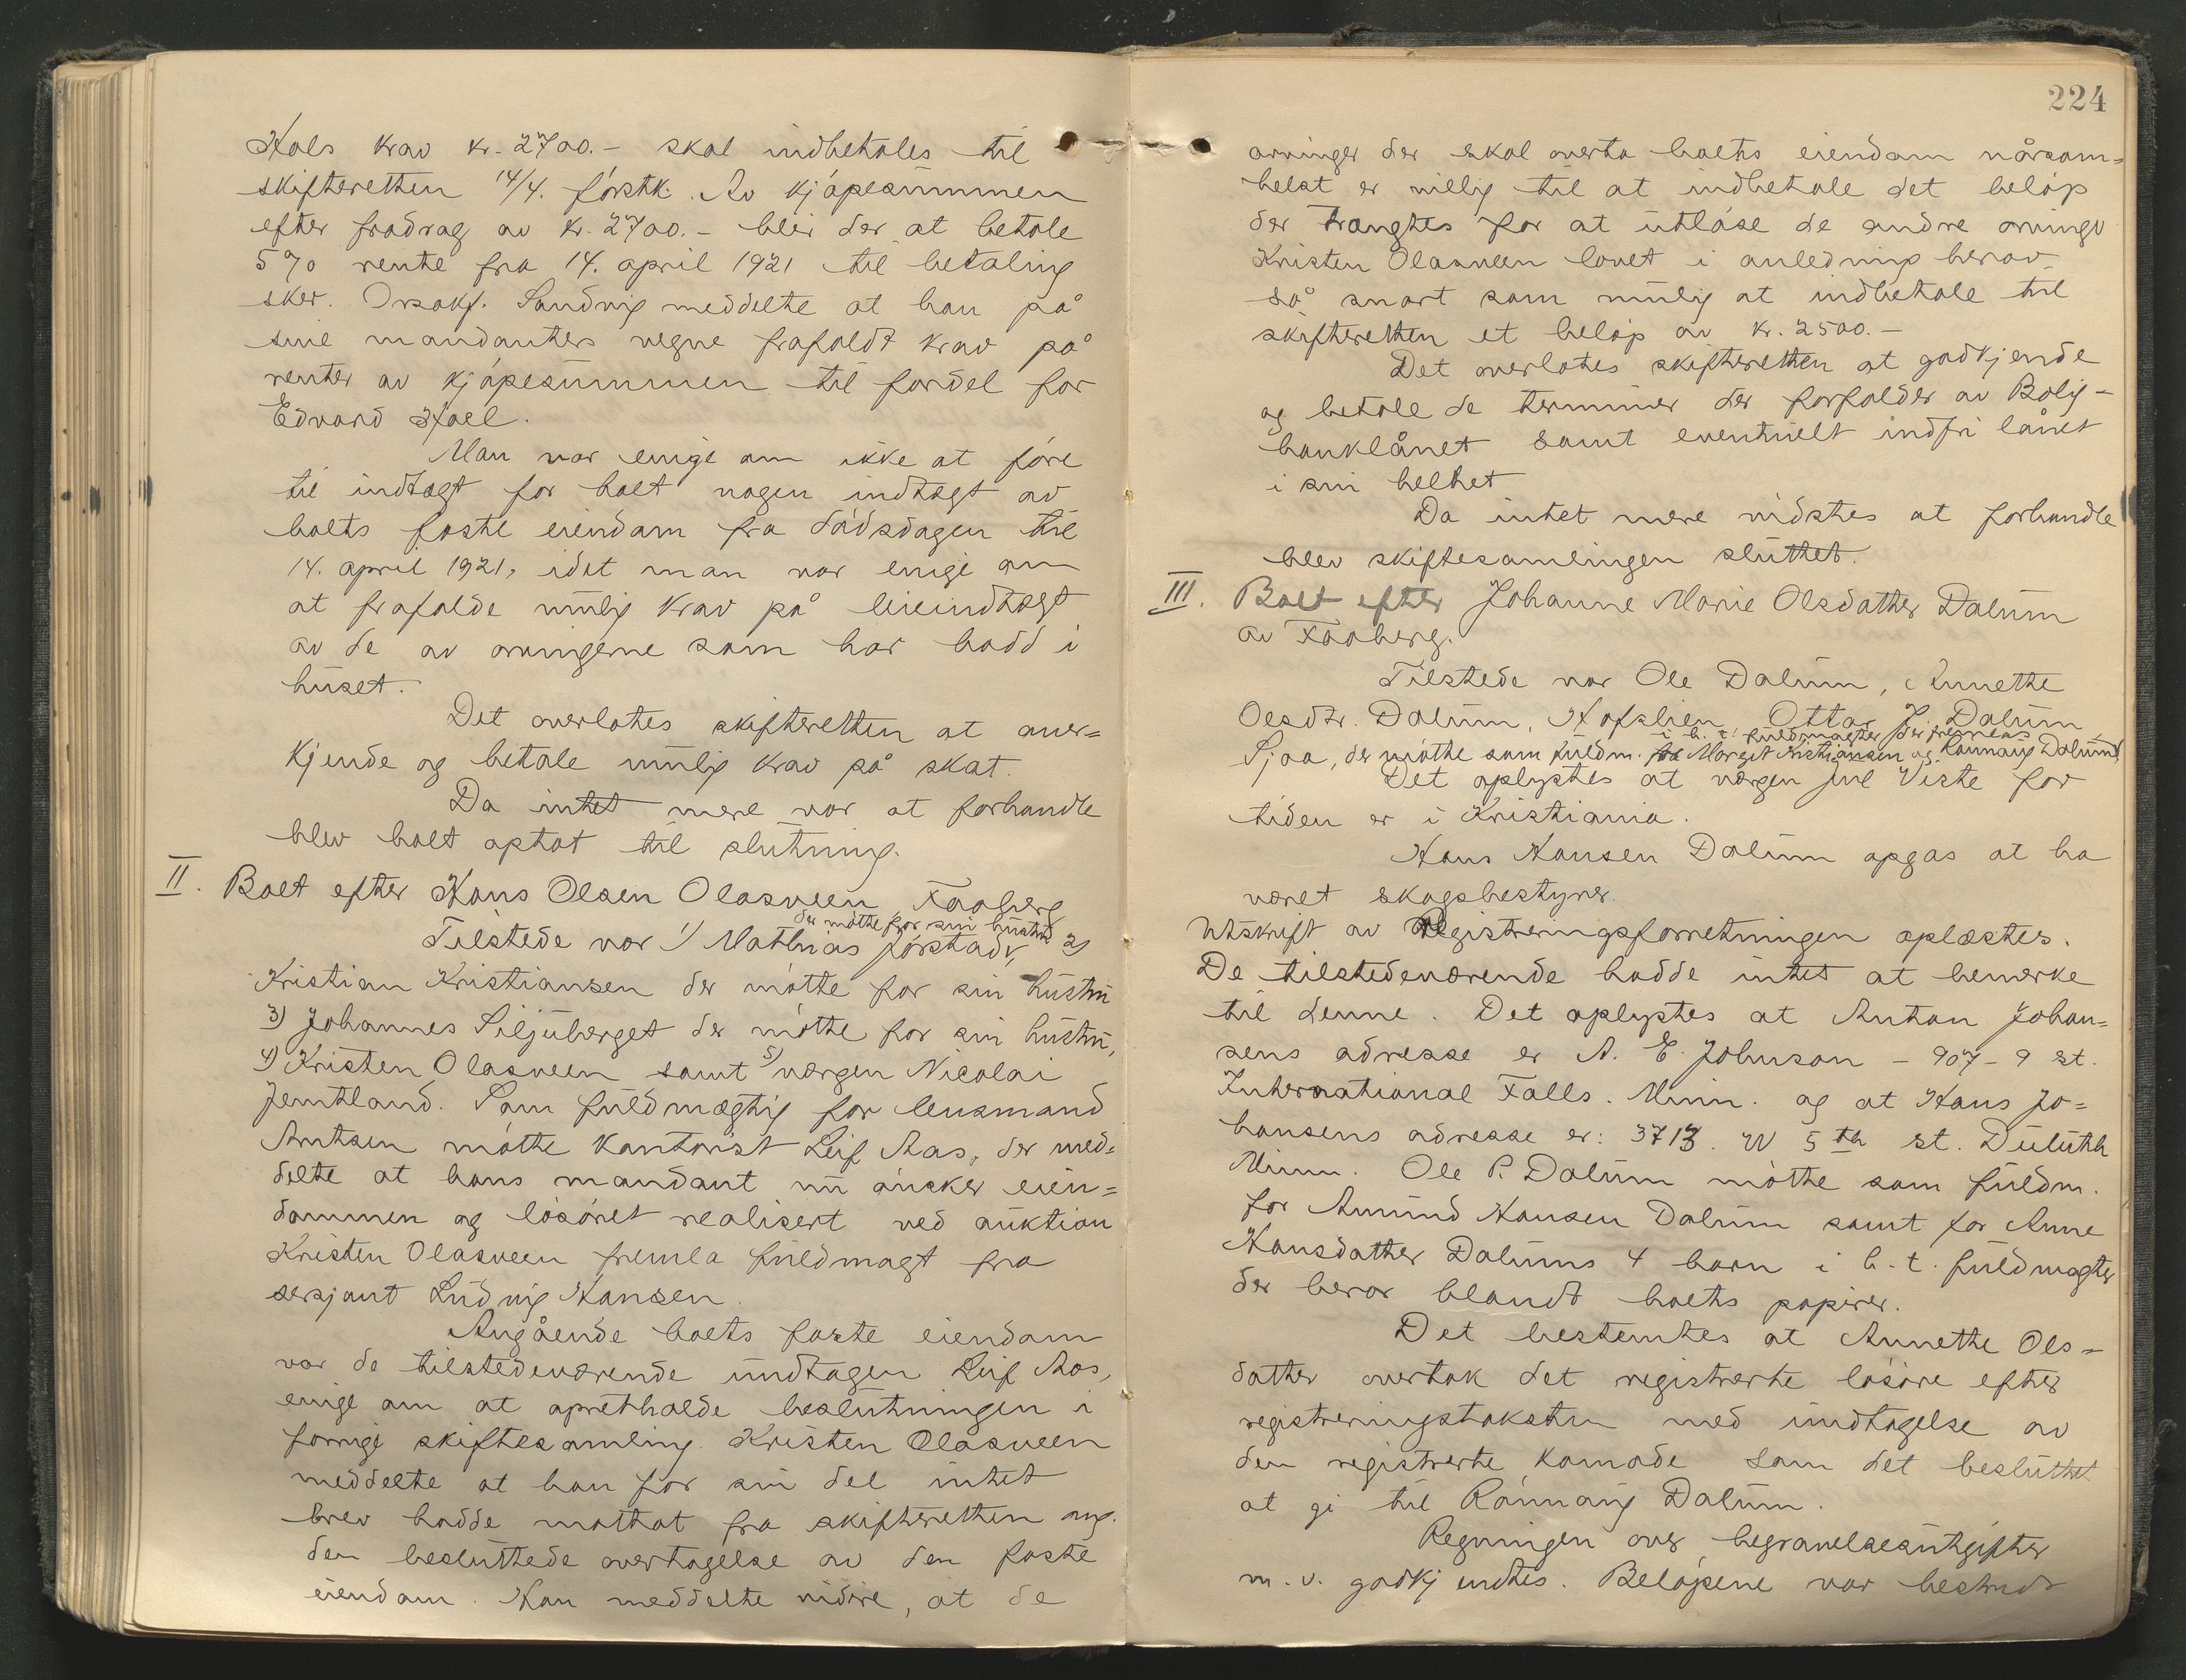 Hols krav kr. 2700.- skal indbetales til
skifteretten 14/4. førstk. Av kjøpesummen
efter fradrag av kr. 2700.- blir der at betale
5% rente fra 14. april 1921 til betaling
sker. Orsakf. Sandvig meddelte at han på
sine mandanters vegne frafaldt krav på
renter av kjøpesummen til fordel for
Edvard Hoel.
Man var enige om ikke at føre
til indtægt for boet nogen indtægt av
boets faste eiendom fra dødsdagen til
14. april 1921, idet man var enige om
at frafalde mulig krav på leieindtægt
av de av arvingerne som har bodd i
huset.
Det overlates skifteretten at aner=
kjende og betale mulig krav på skat.
Da intet mere var at forhandle
blev boet optat til slutning.
II. Boet efter Hans Olsen Olasveen, Faaberg
der møtte for sin hustru
Tilstede var 1) Mathias Jørstad, 2)
Kristian Kristiansen der møtte for sin hustru
3) Johannes Siljuberget der møtte for sin hustru,
4) Kristen Olasveen samt 5) værgen Nicolai
Jemtland. Som fuldmægtig for lensmand
Arntsen møtte kontorist Leif Aas, der med=
delte at hans mandant nu ønsker eien=
dommen og løsøret realisert ved auktion
Kristen Olasveen fremla fuldmagt fra
sersjant Ludvig Hansen.
Angående boets faste eiendom
var de tilstedeværende undtagen Leif Aas,
enige om at opretholde beslutningen i
forrige skiftesamling. Kristen Olasveen
meddelte at han for sin del intet
brev hadde mottat fra skifteretten ang.
den besluttede overtagelse av den faste
eiendom. Han meddelte videre, at de
224
arvinger der skal overta boets eiendom nårsom=
helst er villig til at indbetale det beløp
der trængtes for at utløse de andre arvinge
Kristen Olasveen lovet i anledning herav
så snart som mulig at indbetale til
skifteretten et beløp av kr. 2500.-
Det overlates skifteretten at godkjende
og betale de terminer der forfalder av Bolig-
banklånet samt eventuelt indfri lånet
i sin helhet
Da intet mere vidstes at forhandle
blev skiftesamlingen sluttet.
III. Boet efter Johanne Marie Olsdatter Dalum
av Faaberg.
Tilstede var Ole Dalum, Annette
Olsdtr. Dalum, Hofslien, Ottar J. Dalum
i h. t. fuldmagter der fremlas
Sjoa, der møtte som fuldm. for Margit Kristiansen og Rønnaug Dalum,
Det oplystes at værgen Jul Viste for
tiden er i Kristiania.
Hans Hansen Dalum opgas at ha
været skogsbestyrer.
Utskrift av Registreringsforretningen oplæstes.
De tilstedeværende hadde intet at bemerke
til denne. Det oplystes at Anton Johan=
sens adresse er A. E. Johnson - 907-9 st.
International Falls. Minn. og at Hans Jo=
hansens adresse er: 3713. W 5th st. Duluth
Minn. Ole P. Dalum møtte som fuldm.
for Amund Hansen Dalum samt for Anne
Hansdatter Dalums 4 barn i h. t. fuldmagter
der beror blandt boets papirer.
Det bestemtes at Annette Ols=
datter overtok det registrerte løsøre efter
registreringstaksten med undtagelse av
den registrerte komode som det besluttet
at gi til Rønnaug Dalum.
Regningen over begravelsesutgifter
m.v. godkjendtes. Beløpene var bestridt